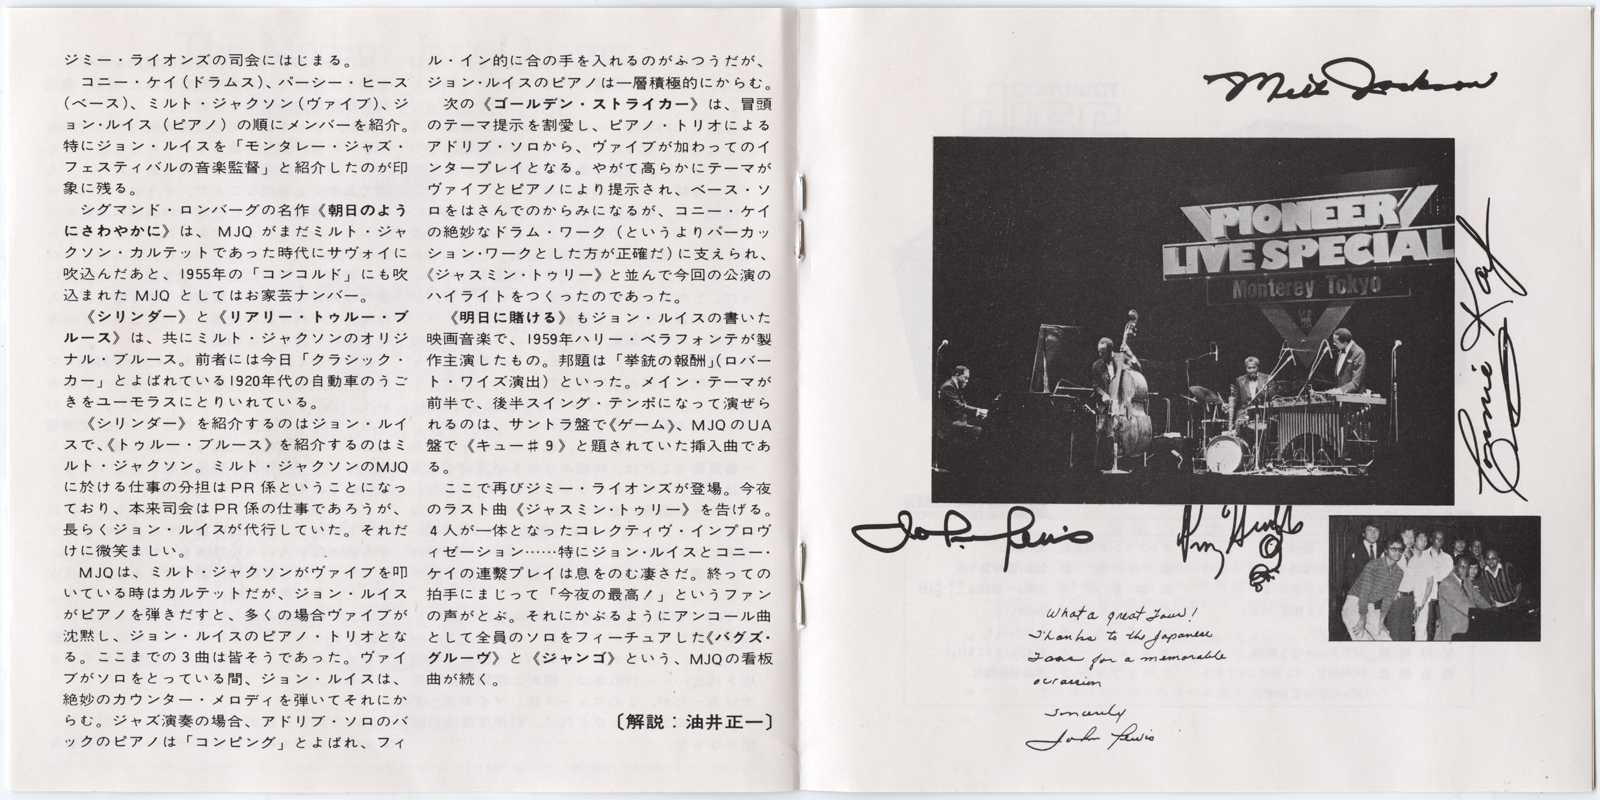 ジミー・ライオンズの司会にはじまる。
　コニー・ケイ(ドラムス)、パーシー・ヒース
(ベース)、ミルト・ジャクソン(ヴァイブ)、ジ
ョン・ルイス (ピアノ) の順にメンバーを紹介。
特にジョン・ルイスを「モンタレー・ジャズ・
フェスティバルの音楽監督」と紹介したのが印
象に残る。
　シグマンド・ロンバーグの名作《朝日のよう
にさわやかに》は、MJQ がまだミルト・ジャ
クソン・カルテットであった時代にサヴォイに
吹込んだあと、1955年の「コンコルド」にも吹
込まれた MJQ としてはお家芸ナンバー。
　《シリンダー》と《リアリー・トゥルー・ブ
ルース》は、共にミルト・ジャクソンのオリジ
ナル・ブルース。前者には今日「クラシック・
カー」とよばれている1920年代の自動車のうご
きをユーモラスにとりいれている。
　《シリンダー》を紹介するのはジョン・ルイ
スで、《トゥルー・ブルース》を紹介するのはミ
ルト・ジャクソン。ミルト・ジャクソンのMJQ
に於ける仕事の分担はPR係ということになっ
ており、本来司会はPR係の仕事であろうが、
長らくジョン・ルイスが代行していた。それだ
けに微笑ましい。
　MJQは、ミルト・ジャクソンがヴァイブを叩
いている時はカルテットだが、ジョン・ルイス
がピアノを弾きだすと、多くの場合ヴァイブが
沈黙し、ジョン・ルイスのピアノ・トリオとな
る。ここまでの3曲は皆そうであった。ヴァイ
ブがソロをとっている間、ジョン・ルイスは、
絶妙のカウンター・メロディを弾いてそれにか
らむ。ジャズ演奏の場合、アドリブ・ソロのバ
ックのピアノは「コンピング」とよばれ、フィ
ル・イン的に合の手を入れるのがふつうだが、
ジョン・ルイスのピアノは一層積極的にからむ。
　次の《ゴールデン・ストライカー》は、冒頭
のテーマ提示を割愛し、ピアノ・トリオによる
アドリブ・ソロから、ヴァイブが加わってのイ
ンタープレイとなる。やがて高らかにテーマが
ヴァイブとピアノにより提示され、ベース・ソ
ロをはさんでのからみになるが、コニー・ケイ
の絶妙なドラム・ワーク (というよりパーカッ
ション・ワークとした方が正確だ) に支えられ、
《ジャスミン・トゥリー》と並んで今回の公演の
ハイライトをつくったのであった。
　《明日に賭ける》もジョン・ルイスの書いた
映画音楽で、1959年ハリー・ベラフォンテが製
作主演したもの。邦題は「拳銃の報酬」(ロバー
ト・ワイズ演出) といった。メイン・テーマが
前半で、後半スイング・テンポになって演ぜら
れるのは、サントラ盤で《ゲーム》、MJQのUA
盤で《キュー♯9》と題されていた挿入曲であ
る。
　ここで再びジミー・ライオンズが登場。今夜
のラスト曲《ジャスミン・トゥリー》を告げる。
4人が一体となったコレクティヴ・インプロヴ
ィゼーション……特にジョン・ルイスとコニー・
ケイの連繋プレイは息をのむ凄さだ。終っての
拍手にまじって「今夜の最高！」というファン
の声がとぶ。それにかぶるようにアンコール曲
として全員のソロをフィーチュアした《バグズ・
グルーヴ》と《ジャンゴ》という、MJQの看板
曲が続く。
〔解説：油井正一〕
Milt Jackson
PIONEER
LIVE SPECIAL
Monterey Tokyo
Connie Kay
John Lewis
Percy Heath
What a great Tour!
Thanks to the Japanese
Fans for a memorable
occasion
Sincerely
John Lewis